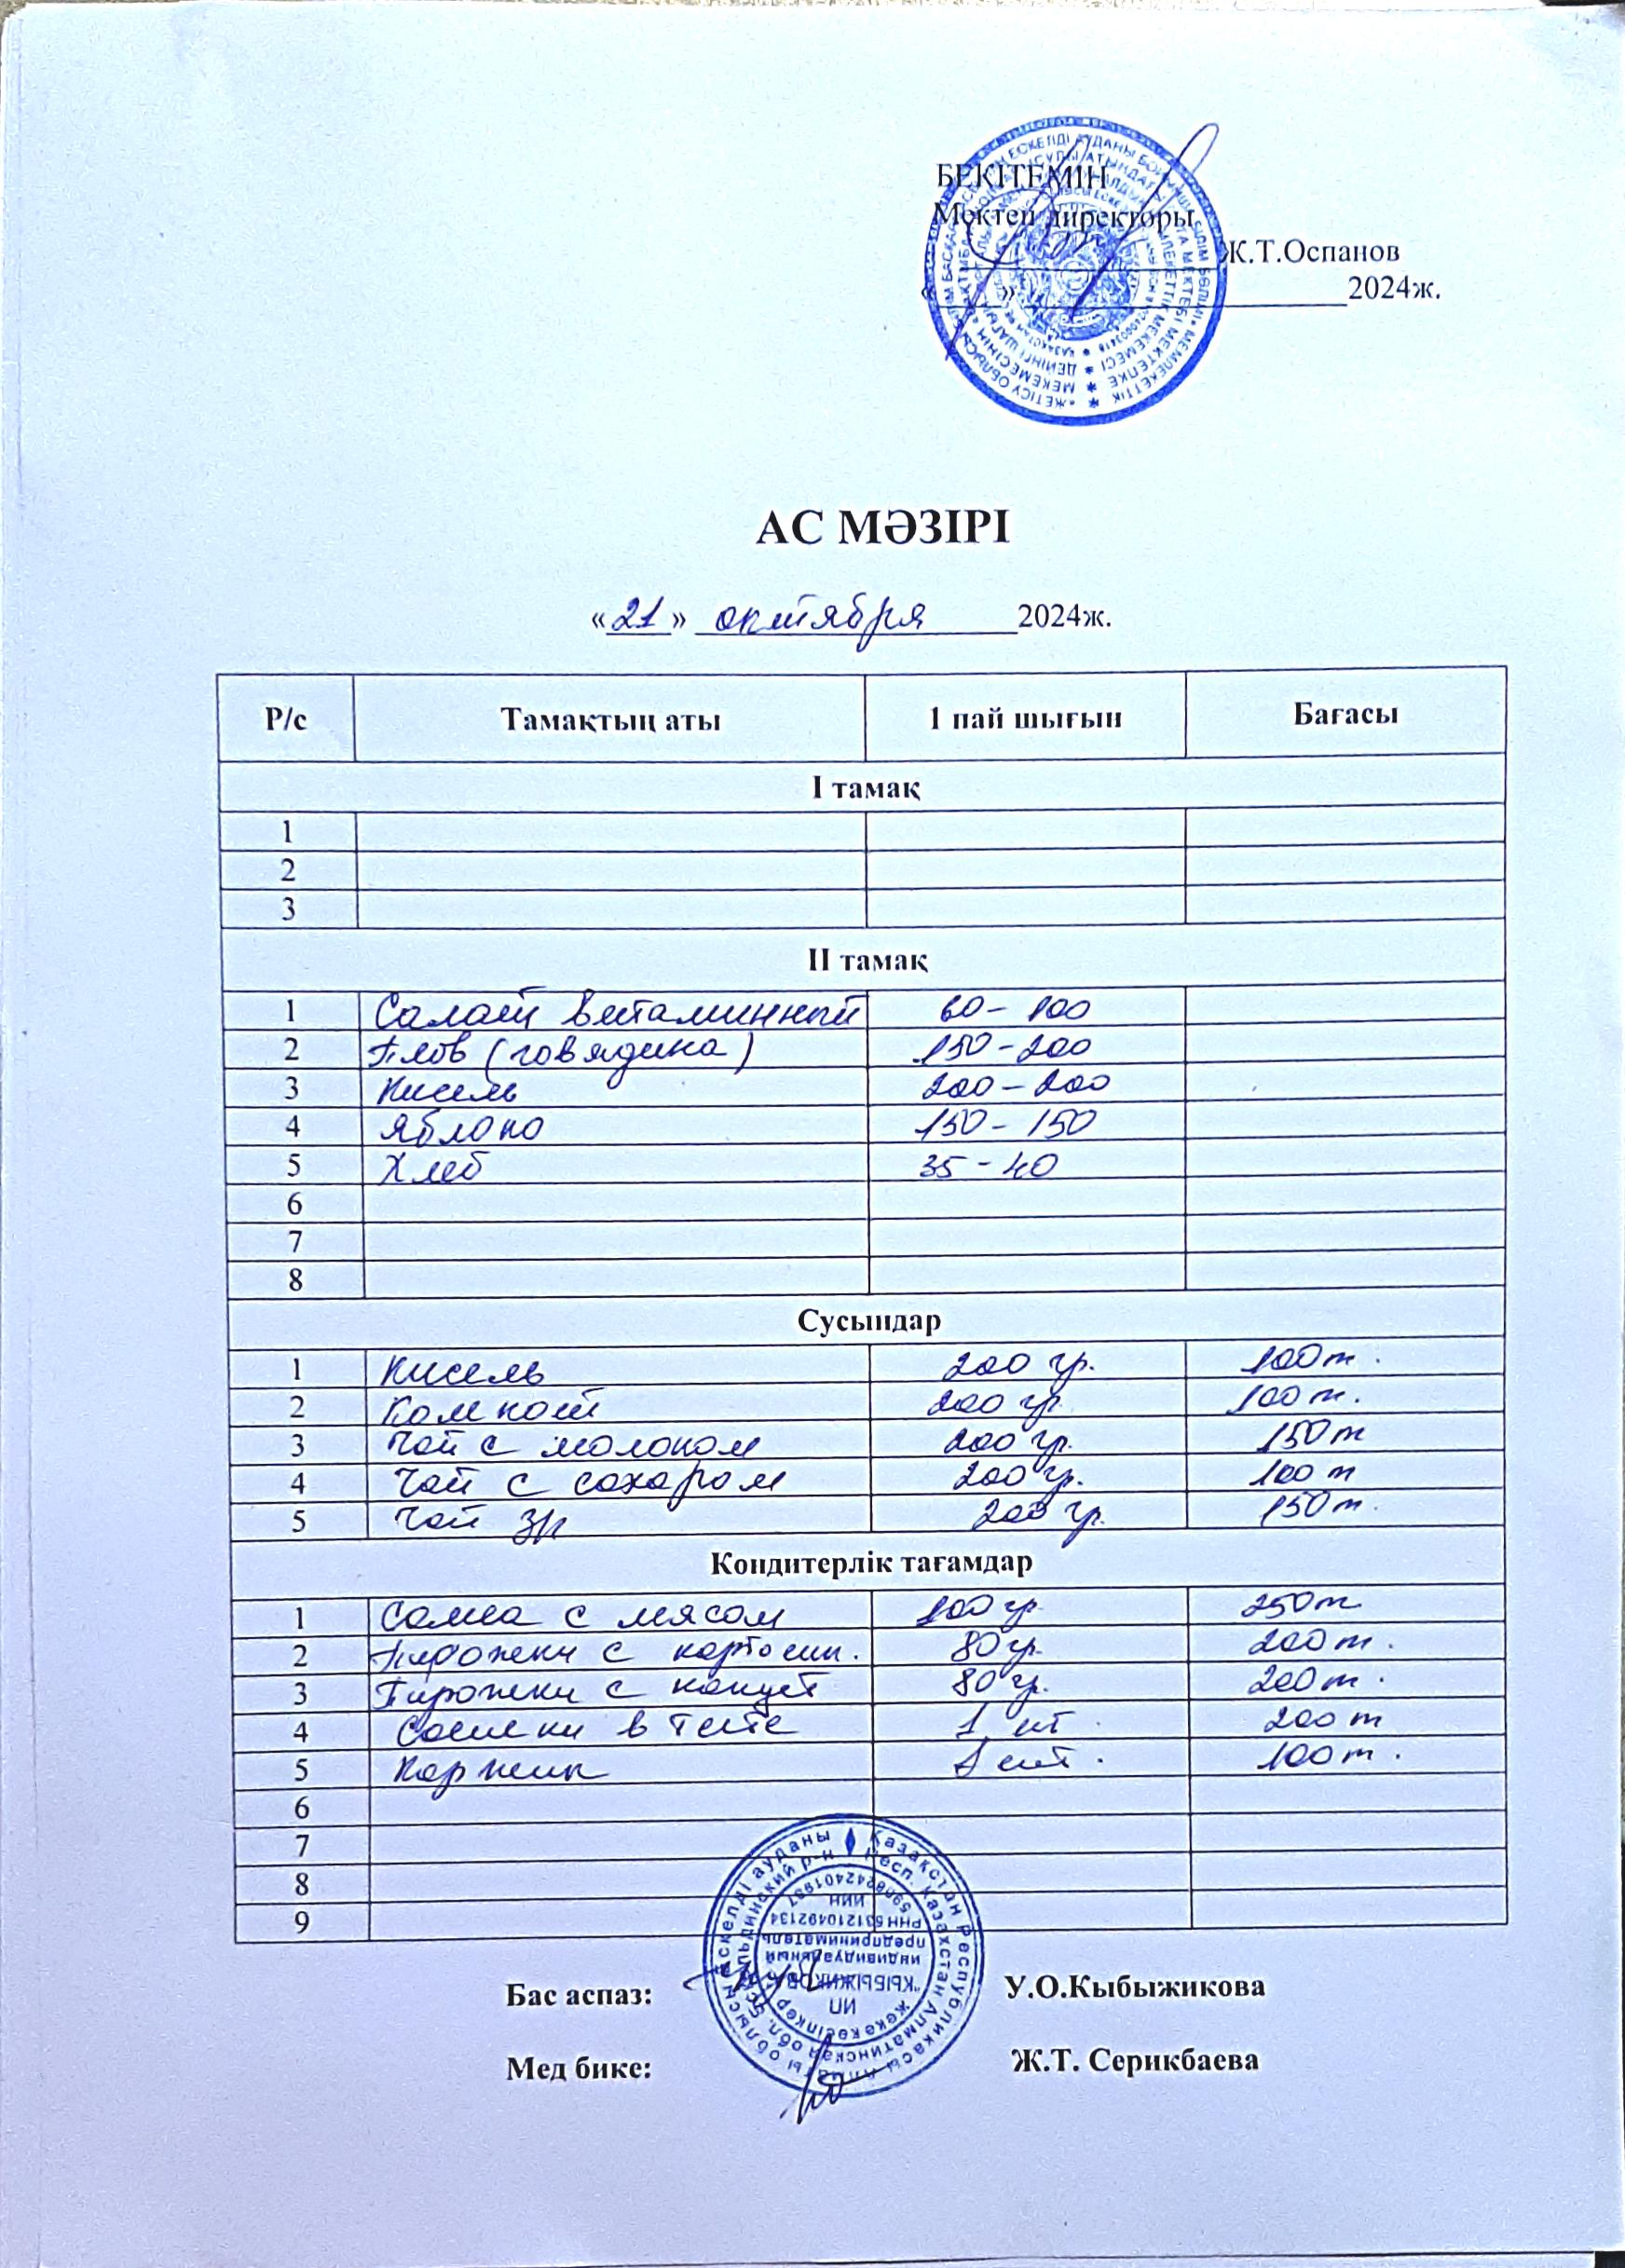 БЕКІТЕМІН
Мектеп директоры
Ж.Т.Оспанов
«____» ____________________2024ж.
АС МӘЗІРІ
«21» октября 2024ж.
Р/с Тамақтың аты 1 пай шығын Бағасы
I тамақ
1
2
3
II тамақ
1 Салат витаминный 60-100
2 Плов (говядина) 150-200
3 Кисель 200-200
4 Яблоко 150-150
5 Хлеб 35-40
6
7
8
Сусындар
1 Кисель 200 гр. 100т.
2 Компот 200 гр 100т.
3 Чай с молоком 200 гр. 150т
4 Чай с сахаром 200 гр. 100т
5 Чай 200 гр. 150т
Кондитерлік тағамдар
1 Самса с мясом 100 гр 250т
2 Пирожки с картош. 80 гр. 200т.
3 Пирожки с капуст 80 гр. 200т.
4 Сосиски в тесте 1 шт 200т
5 Коржик 1 шт. 100т.
6
7
8
9
Бас аспаз: У.О.Кыбыжикова
Мед бике: Ж.Т. Серикбаева